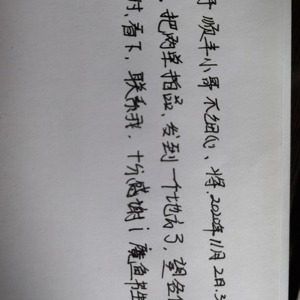 顺丰小哥不细心、将.2020年11月2日.3
把两单拍品、发到一个地方了,望
时,看下,联系我,十分感谢!魔鱼